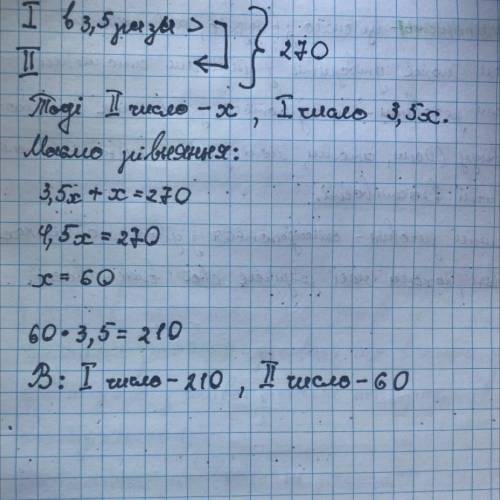 I в 3,5 рази >
II
270
Тоді II число - x , I число 3,5x.
Маємо рівняння:
3,5x + x = 270
4,5x = 270
x = 60
60 • 3,5 = 210
В: I число - 210 , II число - 60